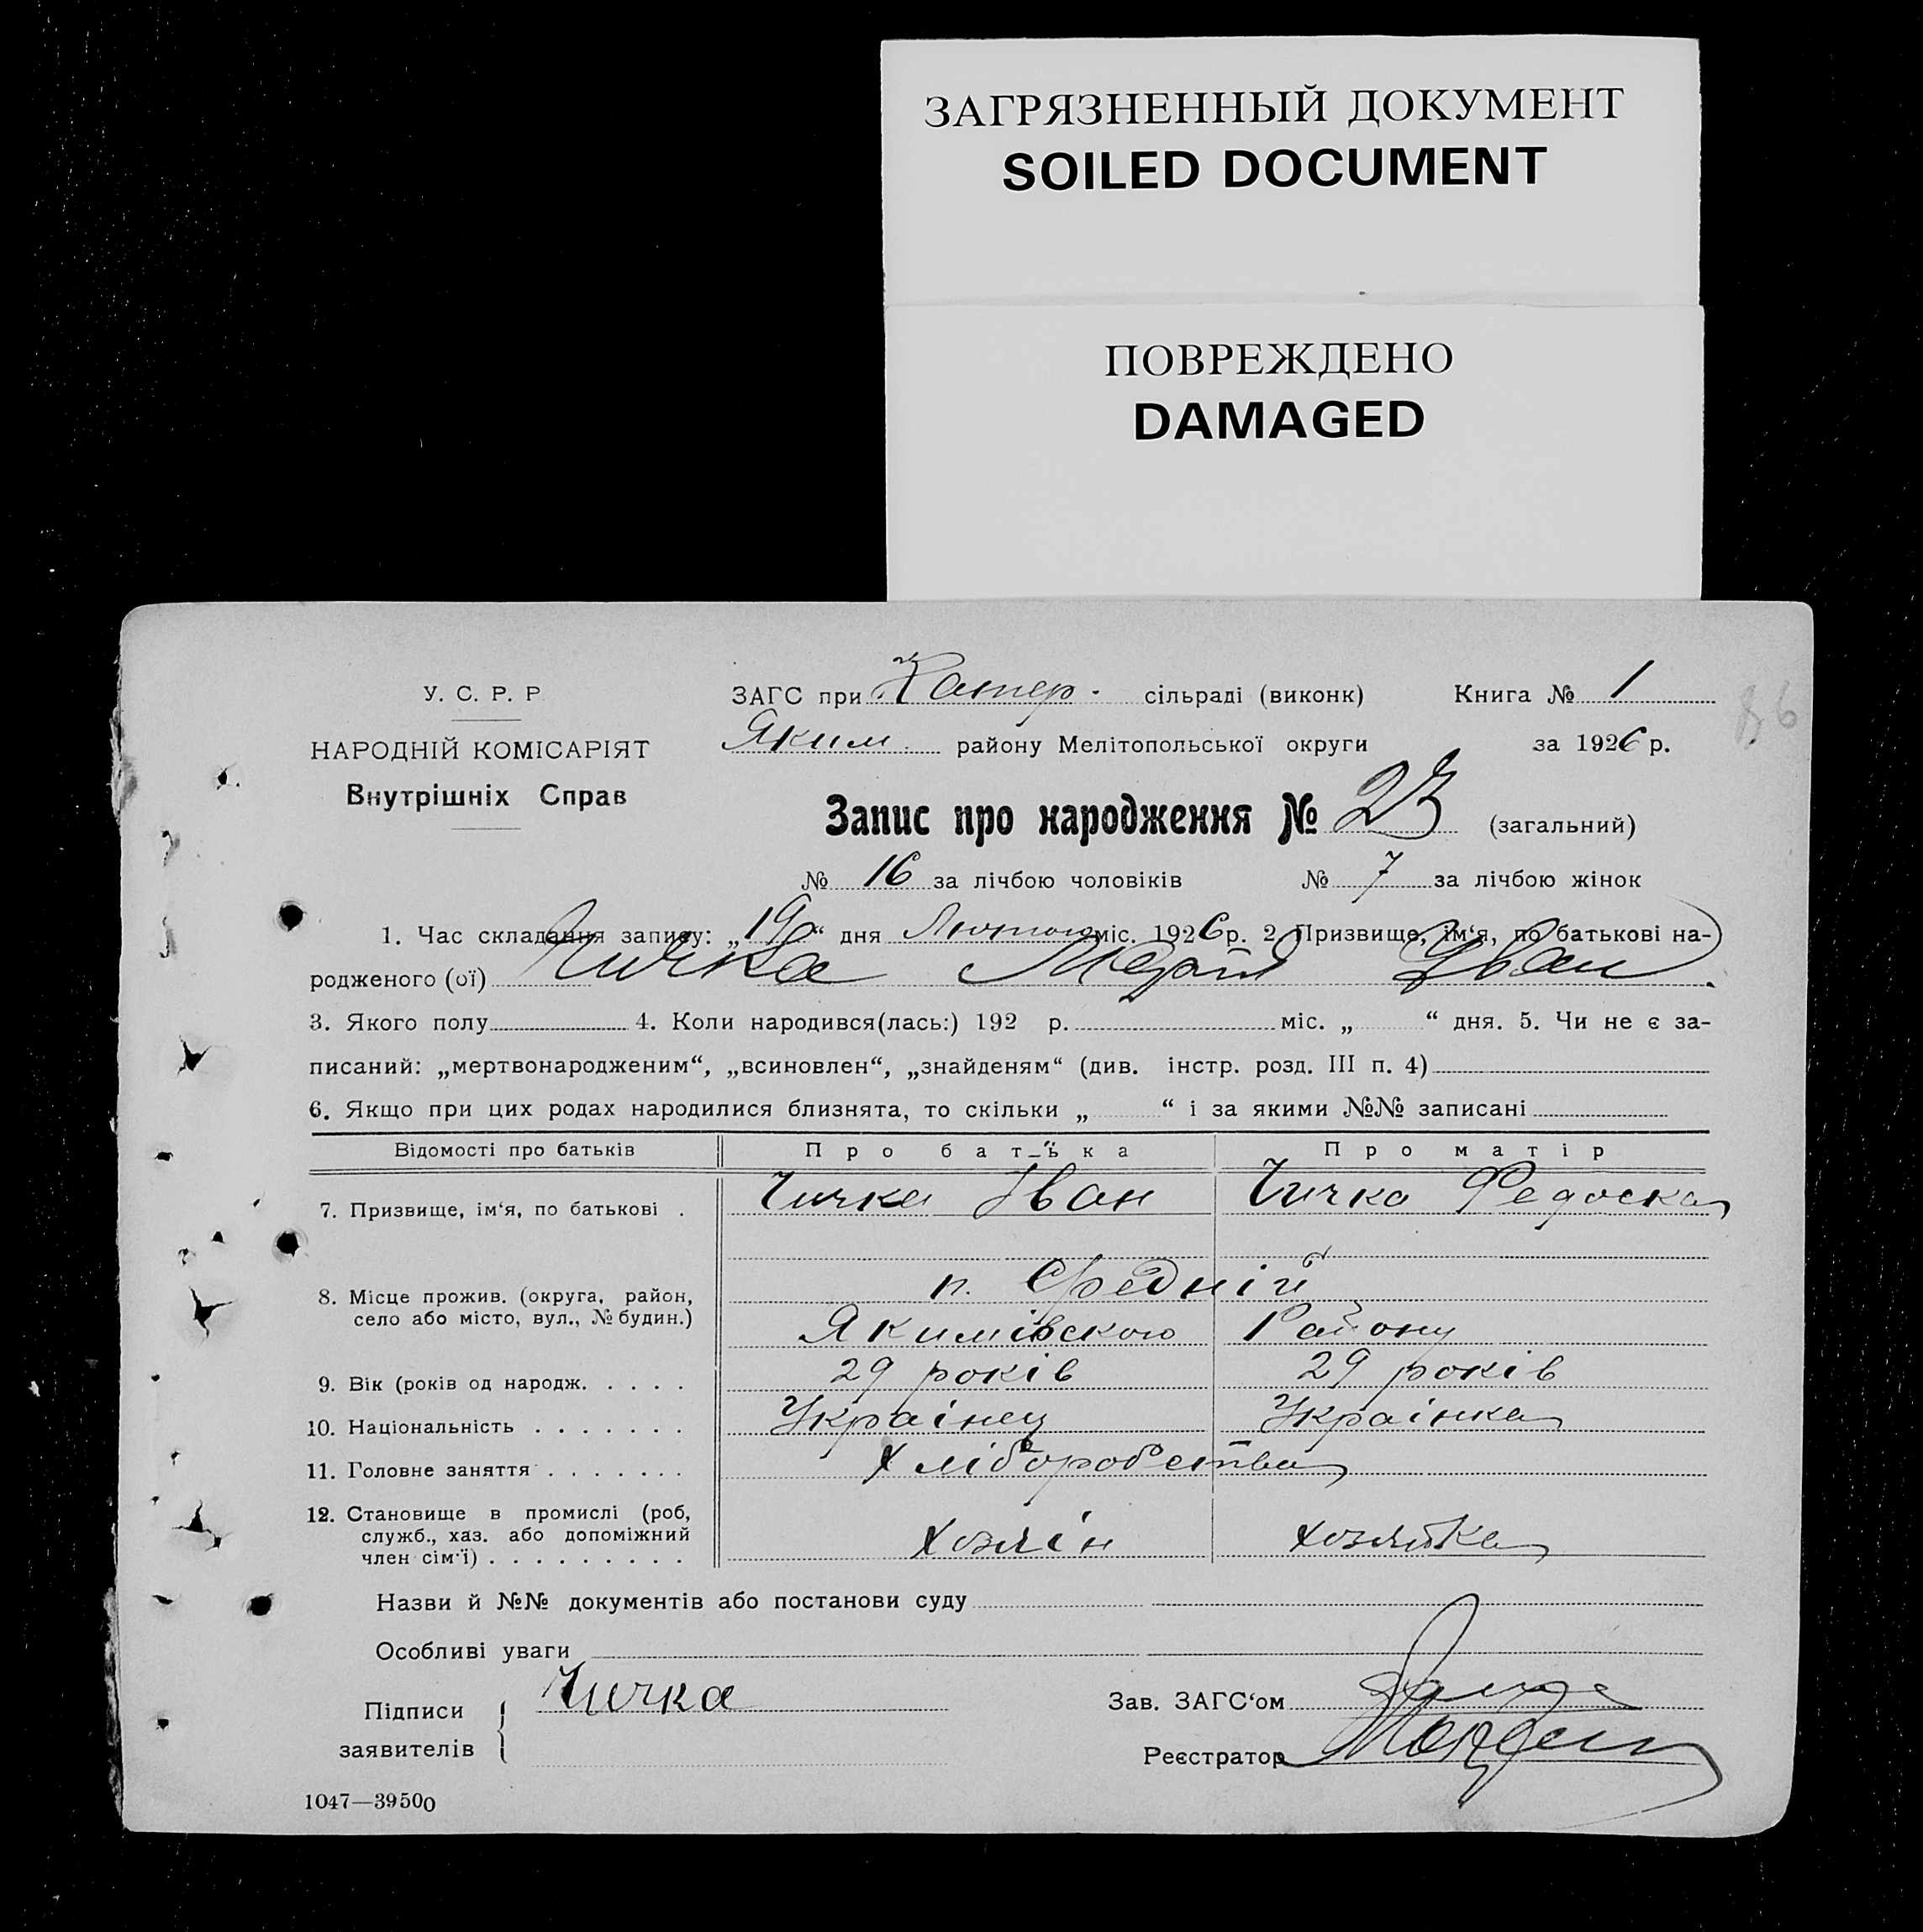 ЗАГРЯЗНЕННЫЙ ДОКУМЕНТ
SOILED DOCUMENT
ПОВРЕЖДЕНО
DAMAGED
У. С. Р. Р
НАРОДНІЙ КОМІСАРІЯТ
Внутрішніх Справ
ЗАГС при Катер. сільраді (виконк) Книга № 1
Яким. району Мелітопольської округи за 1926 р.
86
Запис про народження № 23 (загальний)
№ 16 за лічбою чоловіків № 7 за лічбою жінок
1. Час складання запису: „19“ дня Лютого міс. 1926 р. 2 Призвище, ім‘я, по батькові на-
родженого (ої) Чичка Іван
3. Якого полу 4. Коли народився(лась:) 192 р. міс. „ “ дня. 5. Чи не є за-
писаний: „мертвонародженим“, „всиновлен“, „знайденям“ (див. інстр. розд. III п. 4)
6. Якщо при цих родах народилися близнята, то скільки „ “ і за якими №№ записані
Відомості про батьків Про батька Про матір
7. Призвище, ім‘я, по батькові . Чичка Іван Чичка Федоска
8. Місце прожив. (округа, район, п. Средній
село або місто, вул., № будин.) Якимівского Району
9. Вік (років од народж. . . . . 29 років 29 років
10. Національність . . . . . . . Українец Українка
11. Головне заняття . . . . . . . Хліборобства
12. Становище в промислі (роб,
служб., хаз. або допоміжний
член сім‘ї) . . . . . . . . . . хозяін хозяйка
Назви й №№ документів або постанови суду
Особливі уваги
Підписи Чичка Зав. ЗАГС‘ом
заявителів Реєстратор
1047—39500